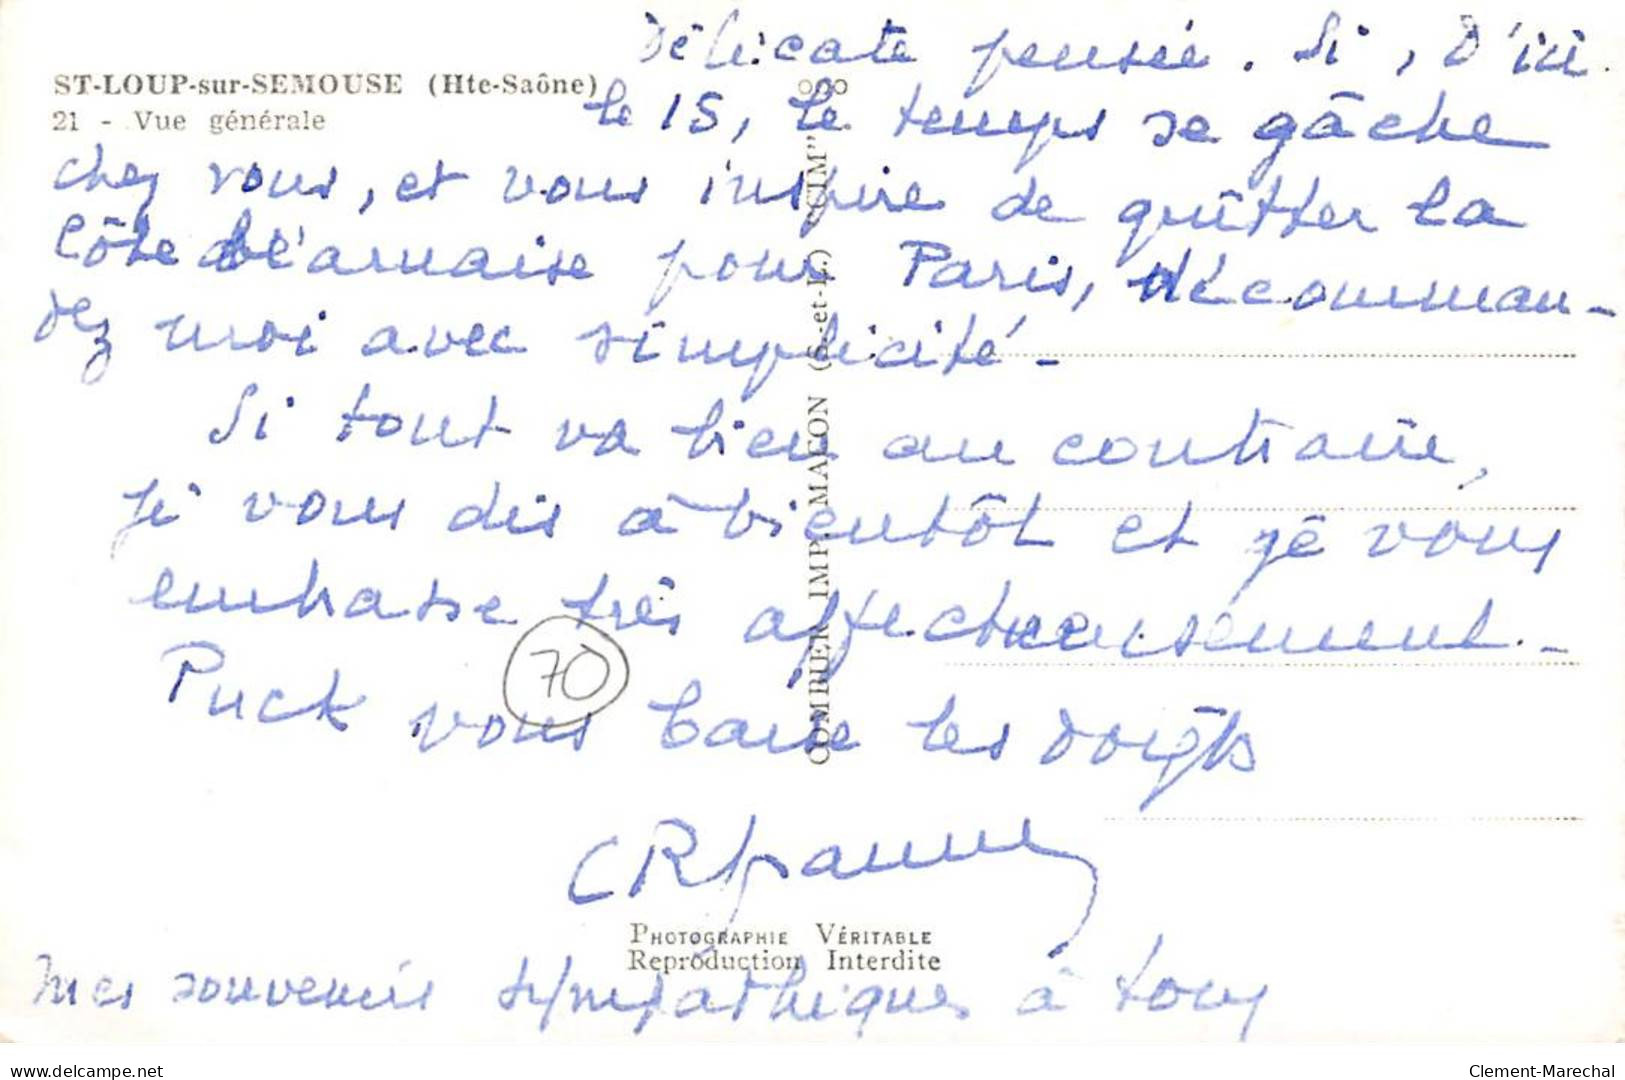 délicate pensée. Si, d'ici
ST-LOUP-sur-SEMOUSE (Hte-Saône)
le 15, le temps se gâche
21 - Vue générale
chez vous, et vous inspire de quitter la
Côte béarnaise pour Paris, décomman-
dez moi avec simplicité -
Si tout va bien au contraire,
je vous dis à bientôt et je vous
embrasse très affectueusement. -
Puck vous baise les doigts
70
COMBIER IMP. MACON (S.-et-L.) "CIM"
PHOTOGRAPHIE VÉRITABLE
Reproduction Interdite
Mes souvenirs sympathiques à tous
delcampe.net
Clement-Marechal